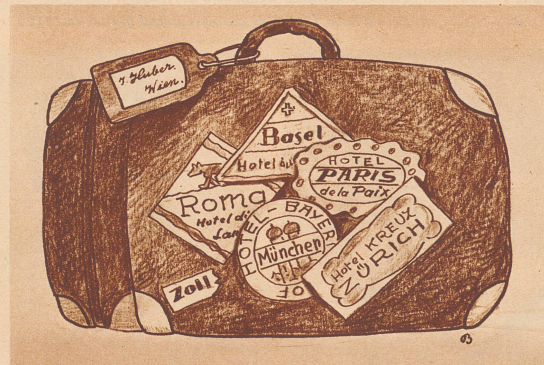 J. Huber.
Wien.
Basel
Hotel
HOTEL
PARIS
de la Paix
Roma
Hotel di
HOTEL-BAYER
OF
München
Hotel KREUX
ZÜRICH
Zoll
B